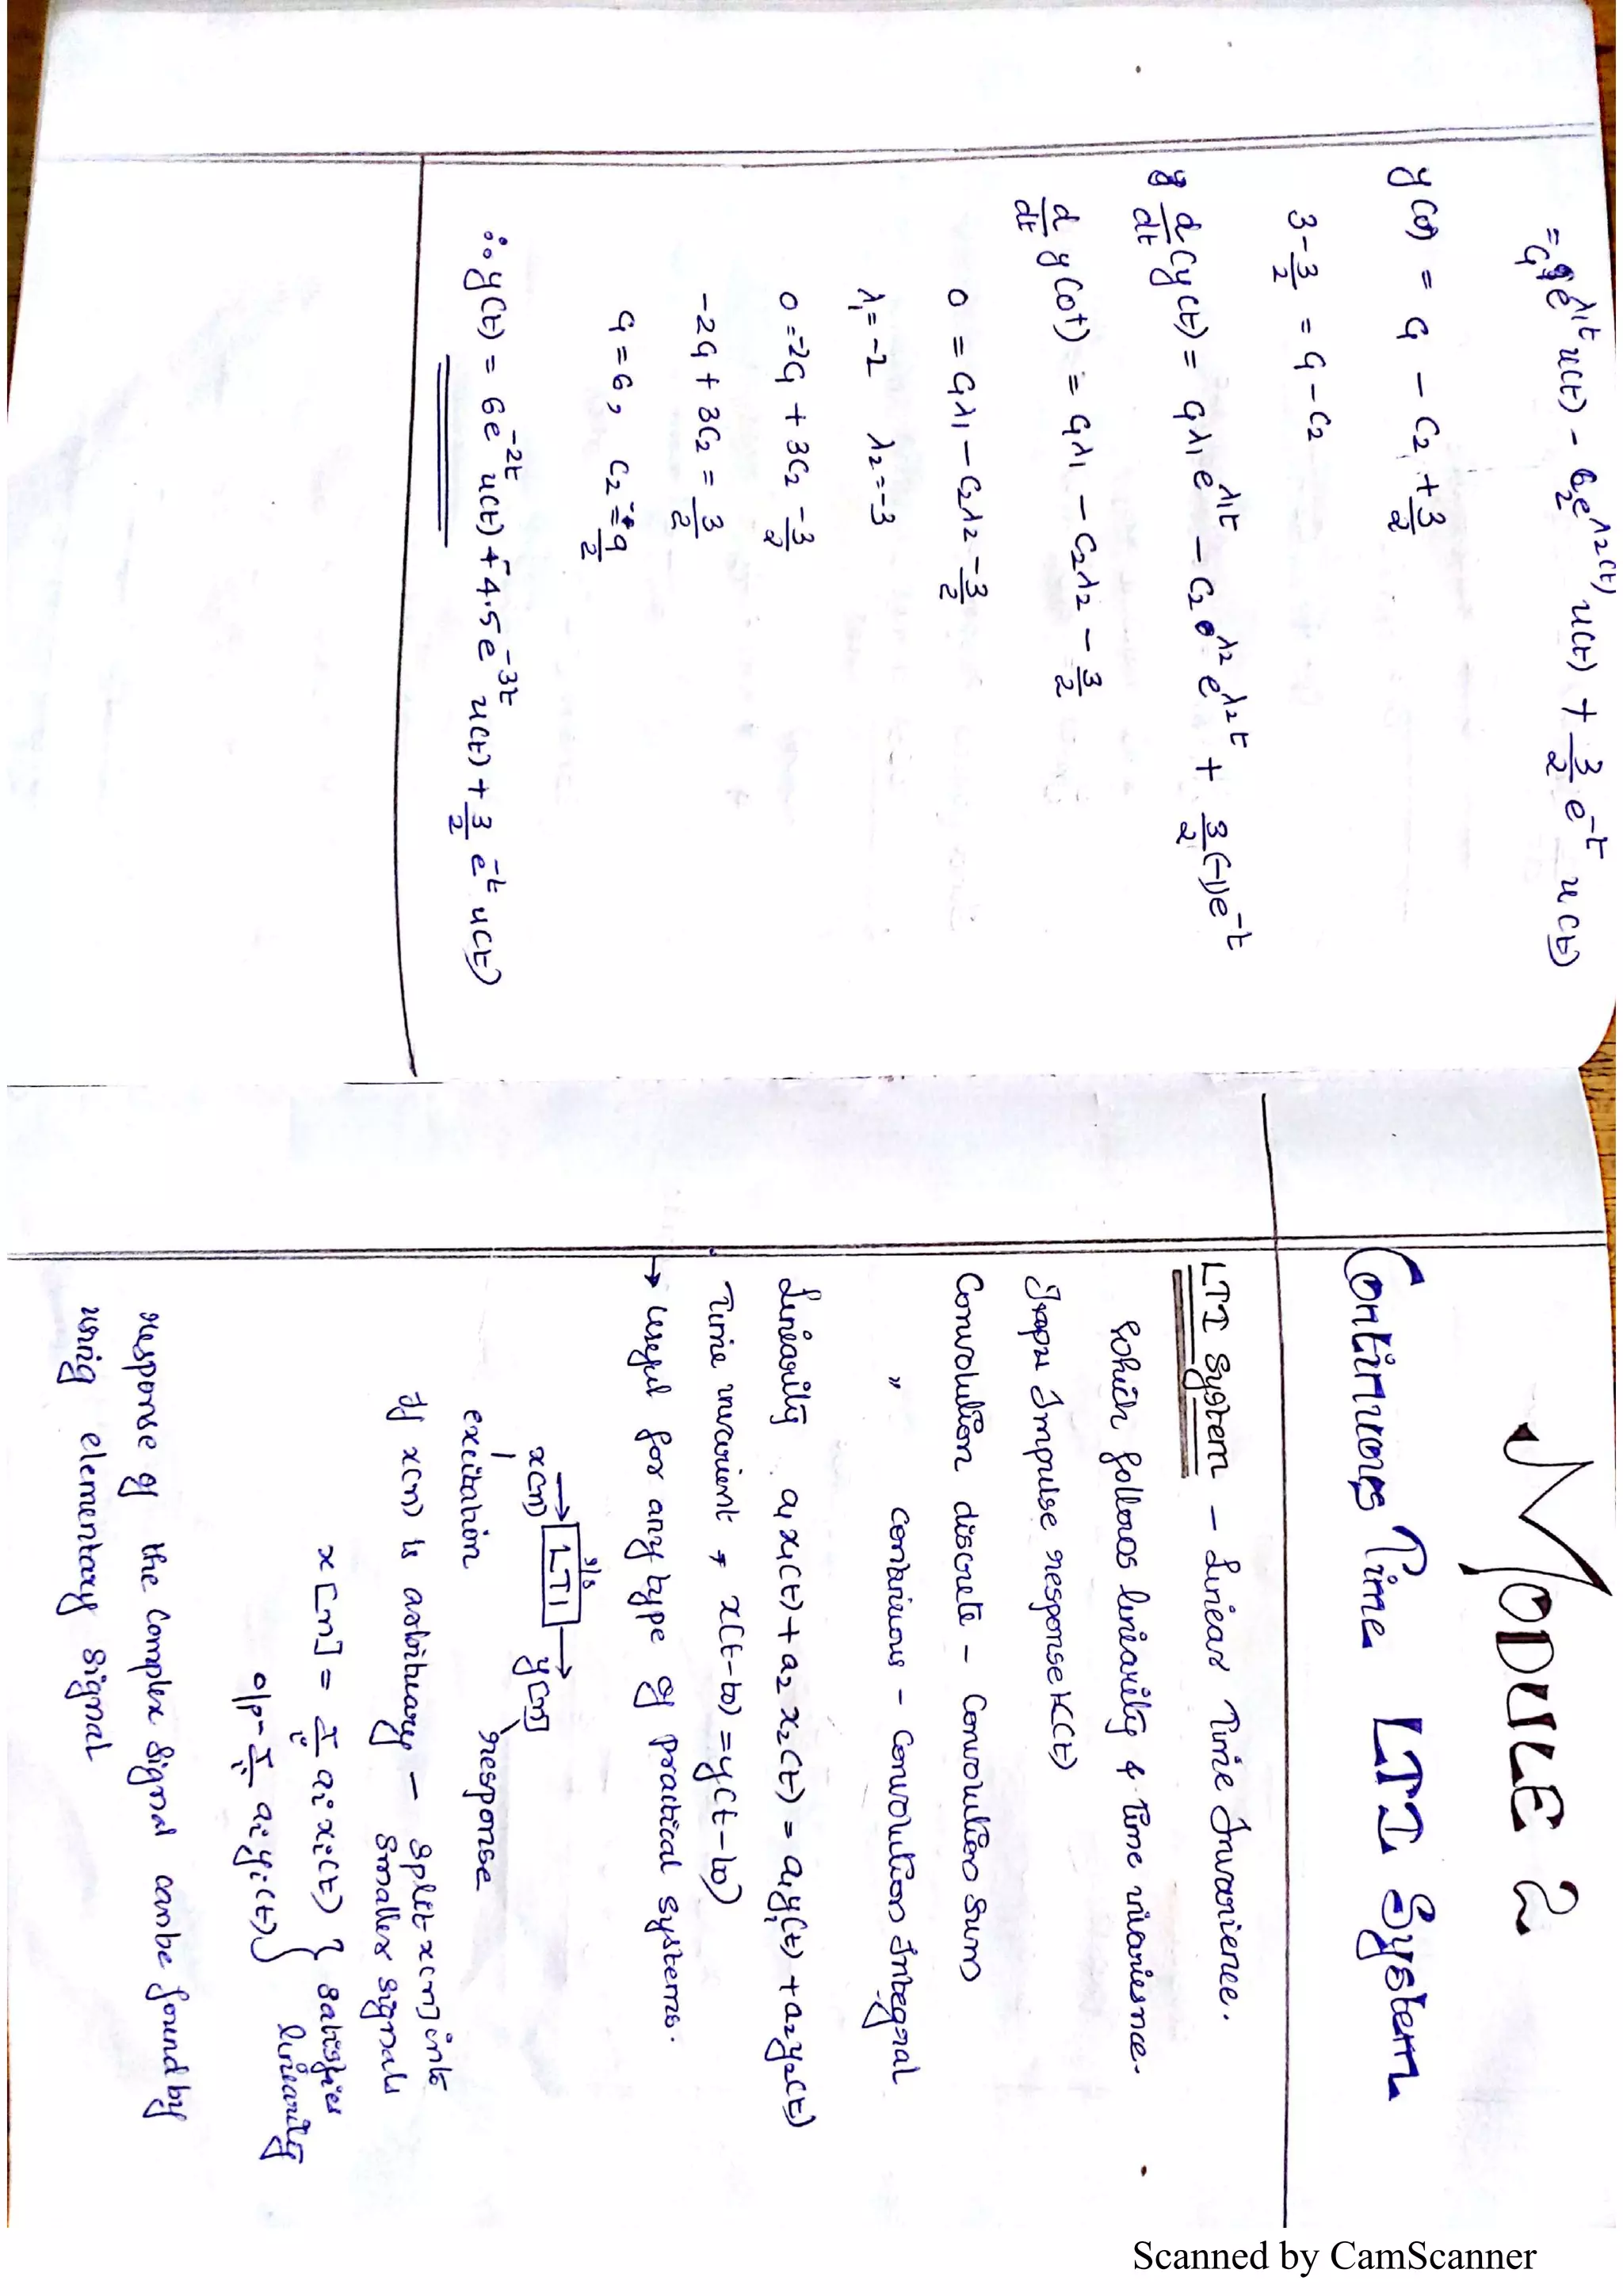 = C₁e^λ₁t u(t) - C₂e^λ₂(t) u(t) + 3/2 e^-t u(t)
y(0) = C₁ - C₂ + 3/2
3 - 3/2 = C₁ - C₂
d/dt (y(t)) = C₁λ₁e^λ₁t - C₂ λ₂ e^λ₂t + 3/2 (-1)e^-t
d/dt y(0+) = C₁λ₁ - C₂λ₂ - 3/2
0 = C₁λ₁ - C₂λ₂ - 3/2
λ₁ = -2 λ₂ = -3
0 = -2C₁ + 3C₂ - 3/2
-2C₁ + 3C₂ = 3/2
C₁ = 6, C₂ = 9/2
∴ y(t) = 6e^-2t u(t) + 4.5e^-3t u(t) + 3/2 e^-t u(t)
MODULE 2
Continuous Time LTI System
LTI System - Linear Time Invarience.
which follows linearity & time invariesnce.
Impulse response H(t)
Convolution discrete - Convolution sum
" Continuous - Convolution Integral
Linearity a₁x₁(t) + a₂x₂(t) = a₁y₁(t) + a₂y₂(t)
Time invarient, x(t-t0) = y(t-t0)
→ Useful for any type of practical systems.
s/s
→ LTI →
x(n) y[n]
excitation response
If x(n) is arbituary - split x[n] into
smaller signals
x[n] = Σ aᵢ xᵢ(t) } satisfies
o/p - Σ aᵢ yᵢ(t) linearity
Response of the Complex signal can be found by
using elementary signal
Scanned by CamScanner